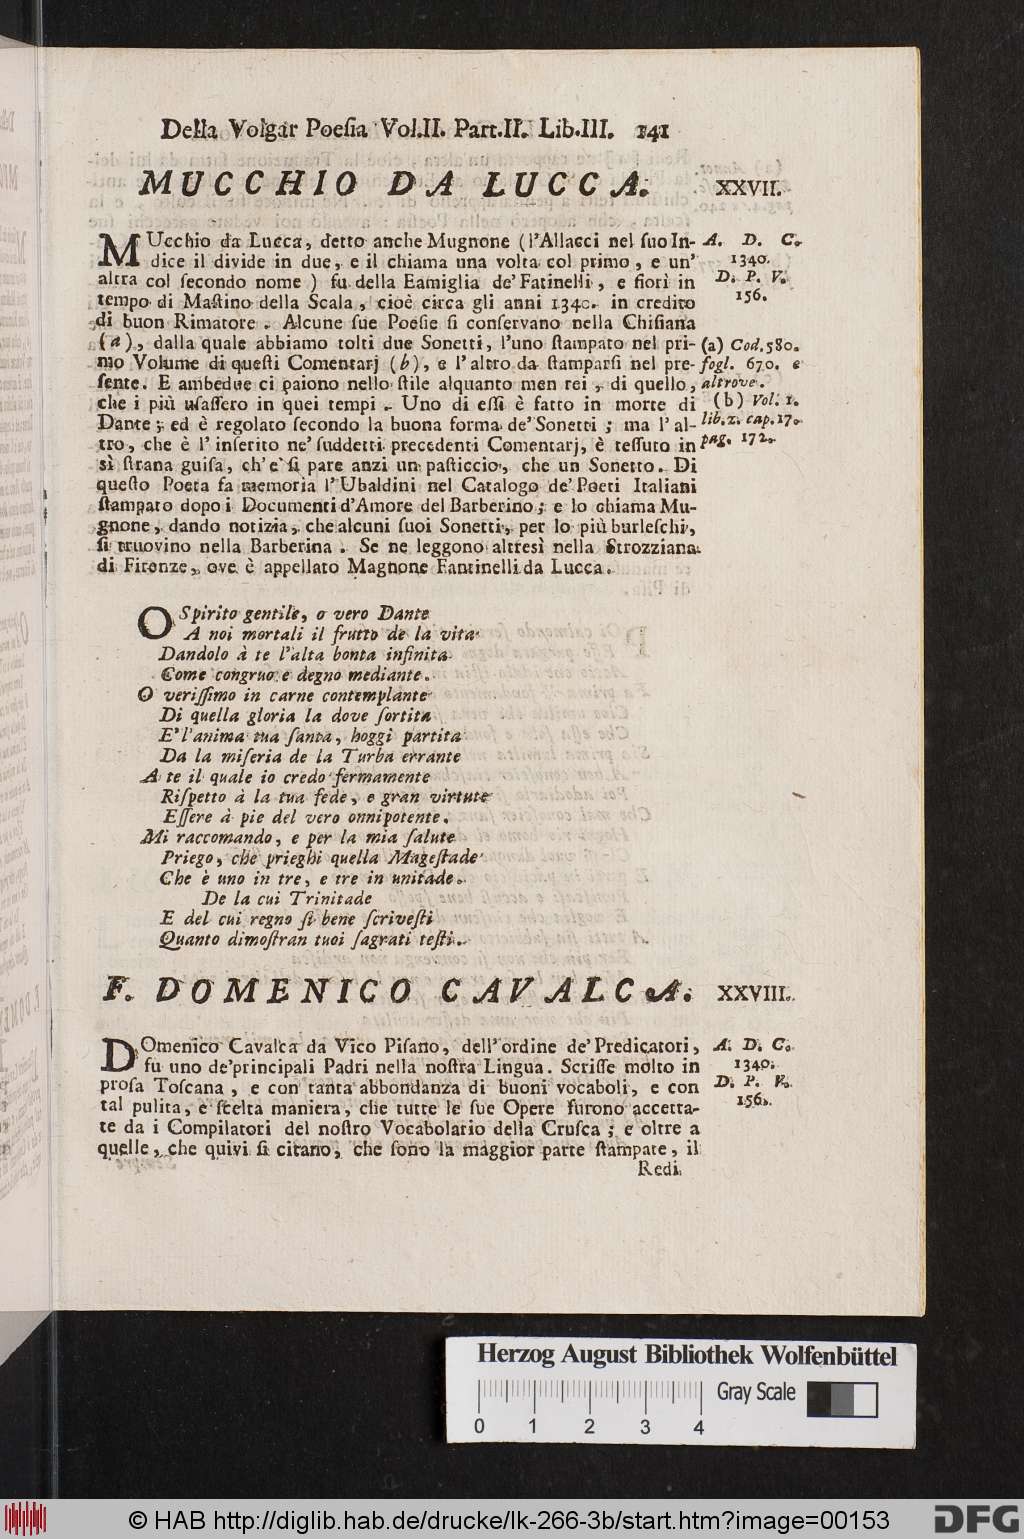 Della Volgar Poeſia Vol.II. Part.II. Lib.III. 141
MUCCHIO DA LUCCA. XXVII.
MUcchio da Lucca, detto anche Mugnone (l'Allacci nel ſuo In-
dice il divide in due, e il chiama una volta col primo, e un'
altra col ſecondo nome) fu della Eamiglia de' Fatinelli, e fiorì in
tempo di Maſtino della Scala, cioè circa gli anni 1340. in credito
di buon Rimatore. Alcune ſue Poeſie ſi conſervano nella Chiſiana
(a), dalla quale abbiamo tolti due Sonetti, l'uno ſtampato nel pri-
mo Volume di queſti Comentarj (b), e l'altro da ſtamparſi nel pre-
ſente. E ambedue ci paiono nello ſtile alquanto men rei, di quello,
che i più uſaſſero in quei tempi. Uno di eſſi è fatto in morte di
Dante; ed è regolato ſecondo la buona forma de' Sonetti; ma l'al-
tro, che è l'inſerito ne' ſuddetti precedenti Comentarj, è teſſuto in
sì ſtrana guiſa, ch'e' ſi pare anzi un paſticcio, che un Sonetto. Di
queſto Poeta fa memoria l'Ubaldini nel Catalogo de' Poeti Italiani
ſtampato dopo i Documenti d'Amore del Barberino; e lo chiama Mu-
gnone, dando notizia, che alcuni ſuoi Sonetti, per lo più burleſchi,
ſi truovino nella Barberina. Se ne leggono altresì nella Strozziana
di Firenze, ove è appellato Magnone Fantinelli da Lucca.
A. D. C.
1340.
D. P. V.
156.
(a) Cod.580.
fogl. 670. e
altrove.
(b) Vol. 1.
lib.2. cap.17.
pag. 172.
O Spirito gentile, o vero Dante
A noi mortali il frutto de la vita
Dandolo à te l'alta bonta infinita
Come congruo e degno mediante.
O veriſſimo in carne contemplante
Di quella gloria la dove ſortita
E' l'anima tua ſanta, hoggi partita
Da la miſeria de la Turba errante
A te il quale io credo fermamente
Riſpetto à la tua fede, e gran virtute
Eſſere à pie del vero onnipotente.
Mi raccomando, e per la mia ſalute
Priego, che prieghi quella Mageſtade
Che è uno in tre, e tre in unitade.
De la cui Trinitade
E del cui regno ſi bene ſcriveſti
Quanto dimoſtran tuoi ſagrati teſti.
F. DOMENICO CAVALCA. XXVIII.
DOmenico Cavalca da Vico Piſano, dell'ordine de' Predicatori,
fu uno de' principali Padri nella noſtra Lingua. Scriſſe molto in
proſa Toſcana, e con tanta abbondanza di buoni vocaboli, e con
tal pulita, e ſcelta maniera, che tutte le ſue Opere furono accetta-
te da i Compilatori del noſtro Vocabolario della Cruſca; e oltre a
quelle, che quivi ſi citano, che ſono la maggior parte ſtampate, il
Redi
A. D. C.
1340.
D. P. V.
156.
Herzog August Bibliothek Wolfenbüttel
Gray Scale
0 1 2 3 4
© HAB http://diglib.hab.de/drucke/lk-266-3b/start.htm?image=00153
DFG